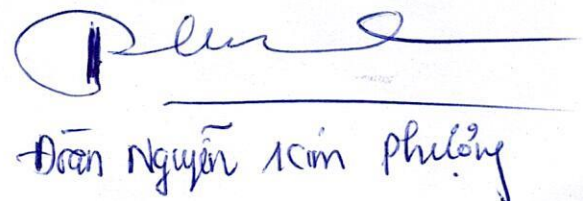 Đoàn Nguyễn Kim Phượng